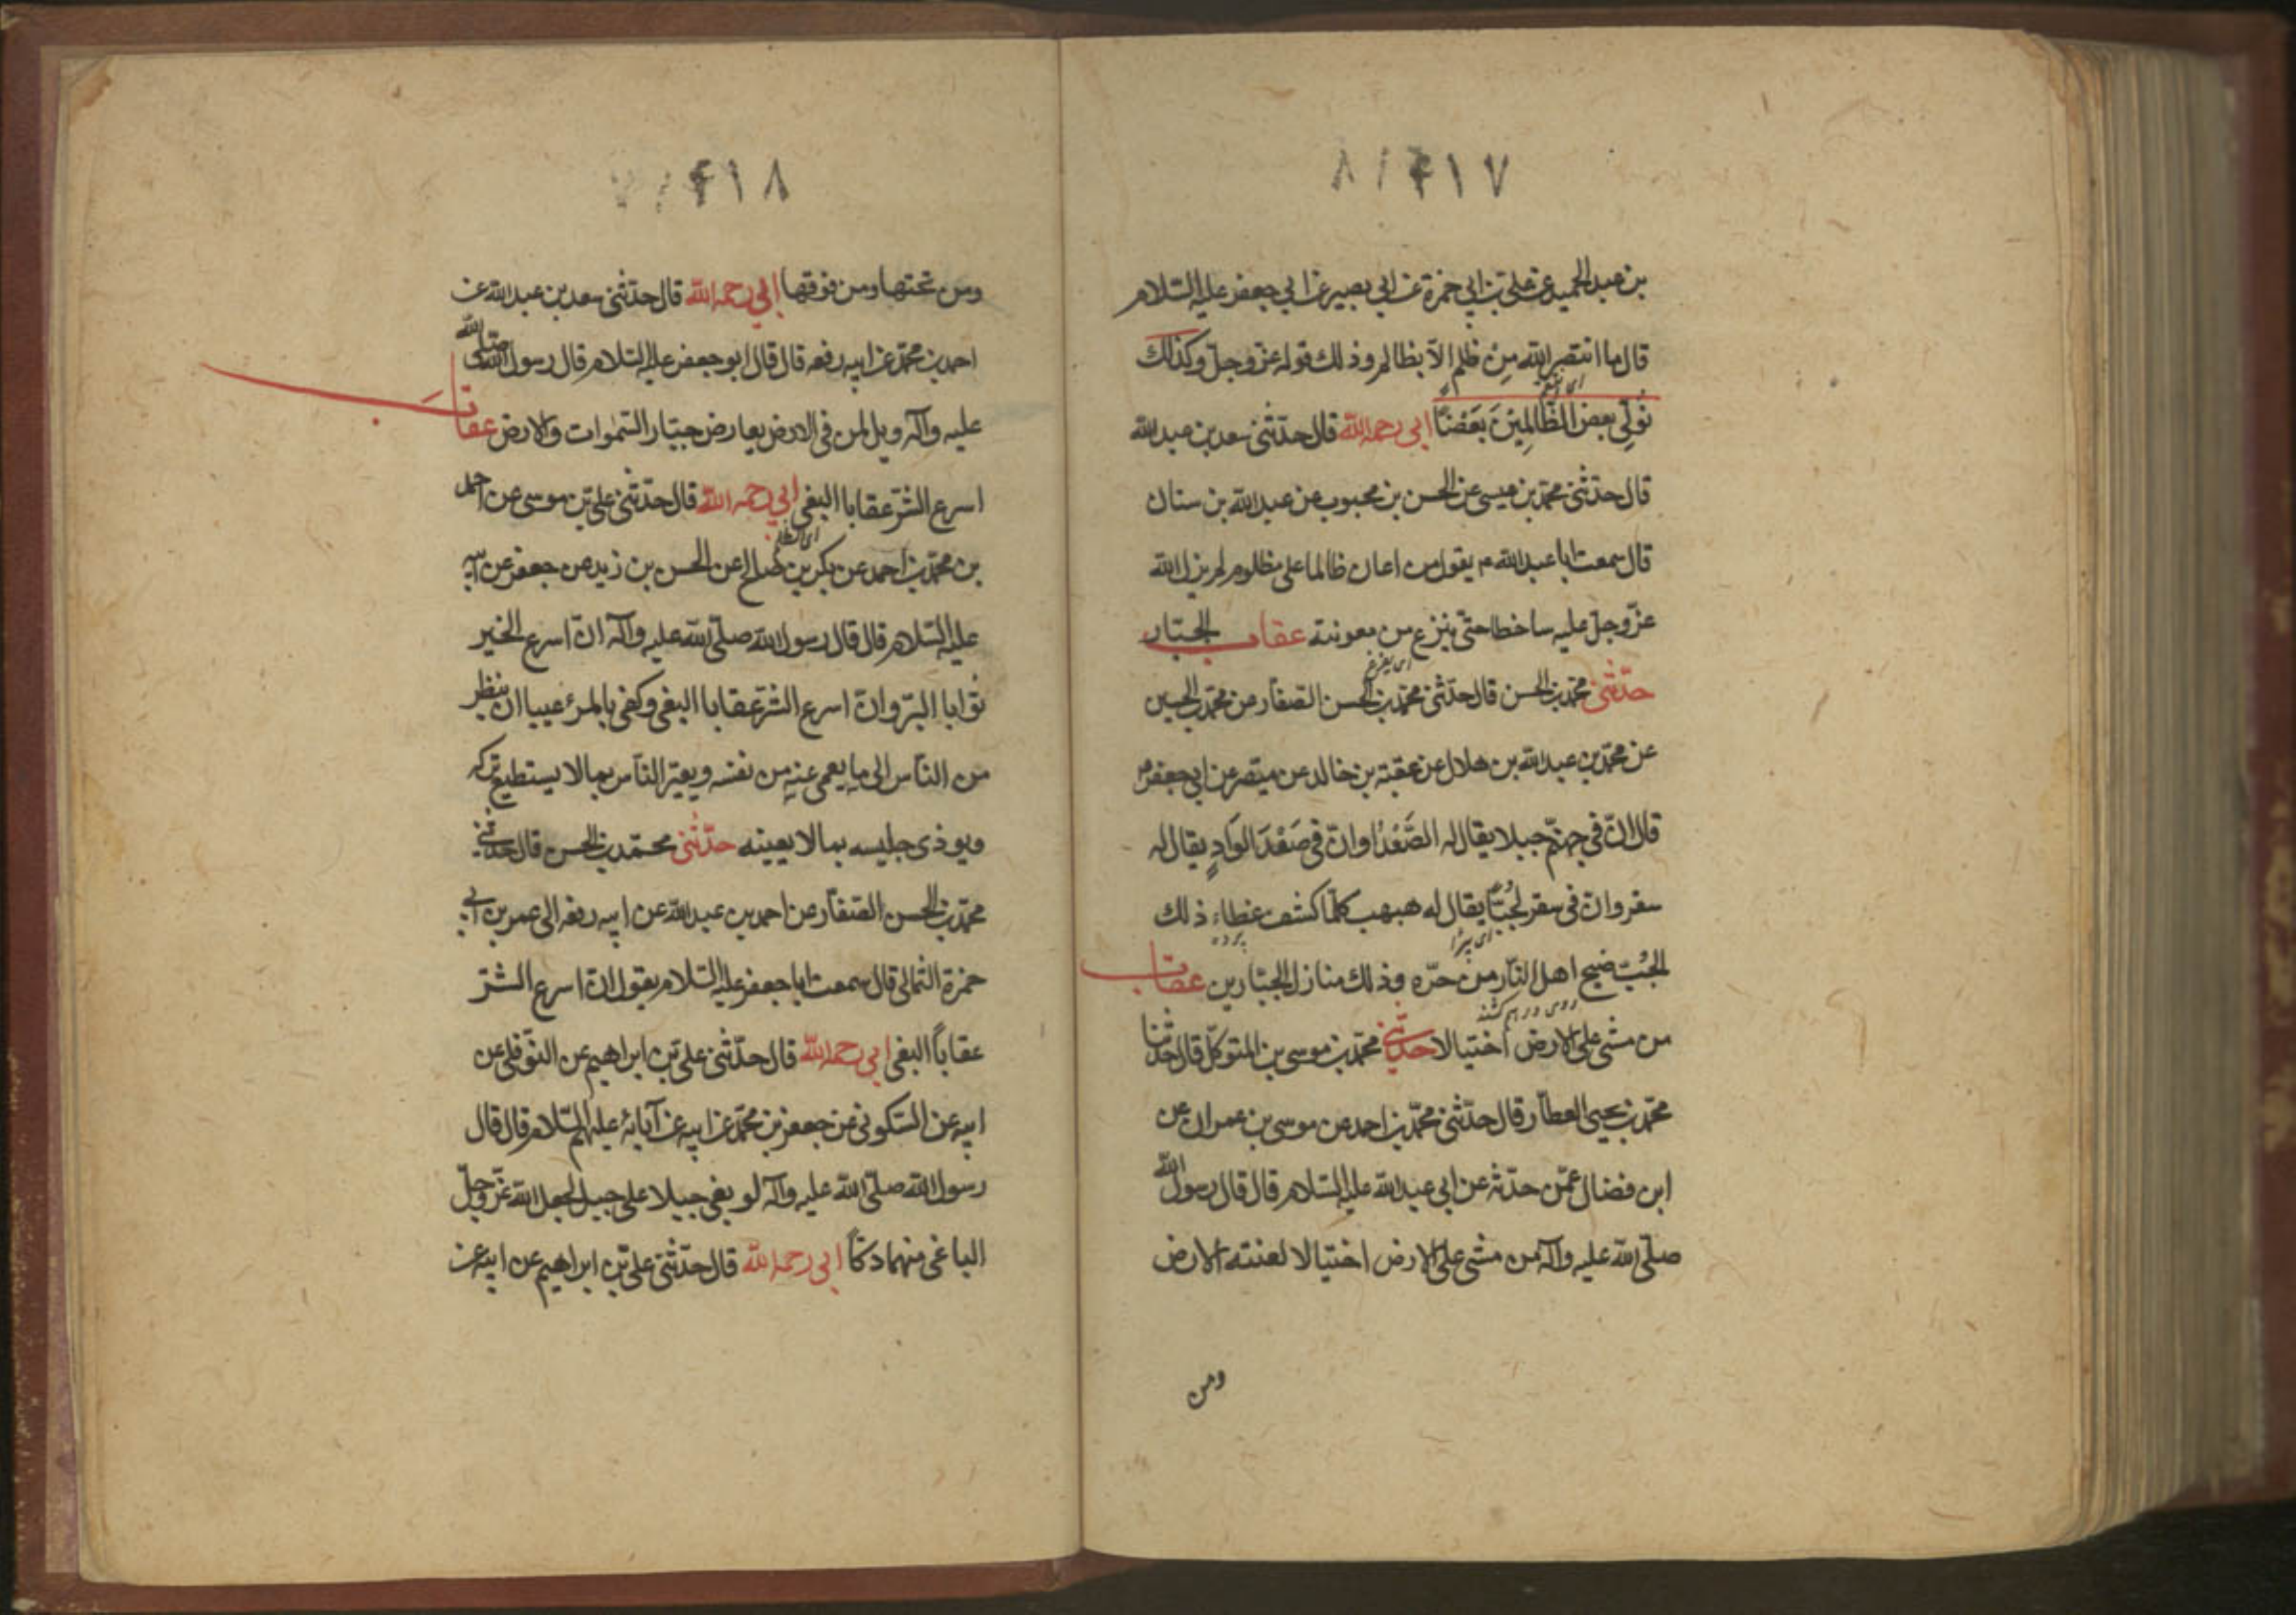 ٤١٧
بن عبد الحميد عن علي بن ابي حمزة عن ابي بصير عن ابي جعفر عليه السّلام
قال ما انتصر الله مِنْ ظلم الاّ بظالم وذلك قوله عزّ وجلّ وكذلك
نُولّى بعض الظّالمِينَ بَعْضًا ابي رحمه الله قال حدّثنى سعد بن عبد الله
قال حدّثنى محمّد بن عيسى عن الحسن بن محبوب عن عبد الله بن سنان
قال سمعت ابا عبد الله م يقول من اعان ظالما على مظلوم لم يزل الله
عزّ وجلّ عليه ساخطا حتى ينزع من معونته عقاب الجبّار
حدّثنى محمّد بن الحسن قال حدّثنى محمّد بن الحسن الصفّار عن محمّد بن الحسين
عن محمّد بن عبد الله بن هلال عن عقبة بن خالد عن ميسر عن ابي جعفر م
قال انّ فى جهنّم جبلا يقال له الصَّعْدُ وانّ فى صَعْدَ الوَادٍ يقال له
سقر وان فى سقر لجُبًّا يقال له هبهب كلّما كشف غطاء ذلك
الجُبّ ضج اهل النّار من حرّه وذلك منازل الجبّارين عقاب
من مشى على الارض اختيالا حدّثنى محمّد بن موسى بن المتوكّل قال حدّثنا
محمّد بن يحيى العطّار قال حدّثنى محمّد بن احمد عن موسى بن عمران عن
ابن فضال عمّن حدّثه عن ابي عبد الله عليه السّلام قال قال رسول الله
صلّى الله عليه وآله من مشى على الارض اختيالا لعنته الارض
ومن
٤١٨
ومن تحتها ومن فوقها ابي رحمه الله قال حدّثنى سعد بن عبد الله عن
احمد بن محمّد عن ابيه رفعه قال قال ابو جعفر عليه السّلام قال رسول الله صلّى الله
عليه وآله ويل لمن فى الارض يعارض جبّار السّموات والارض عقاب
اسرع الشّرّ عقابا البغى ابي رحمه الله قال حدّثنى علي بن موسى عن احمد
بن محمّد بن احمد عن بكر بن صالح عن الحسن بن زيد عن جعفر عن ابيه
عليه السّلام قال قال رسول الله صلّى الله عليه وآله انّ اسرع الخير
ثوابا البرّ وانّ اسرع الشّرّ عقابا البغى وكفى بالمرء عيبا ان ينظر
من النّاس الى ما يعمى عنه من نفسه ويعيّر النّاس بما لا يستطيع تركه
ويوذى جليسه بما لا يعينه حدّثنى محمّد بن الحسن قال حدّثنى
محمّد بن الحسن الصّفّار عن احمد بن عبد الله عن ابيه رفعه الى عمر بن ابي
حمزة الثمالى قال سمعت ابا جعفر عليه السّلام يقول انّ اسرع الشّرّ
عقاباً البغى ابي رحمه الله قال حدّثنى علي بن ابراهيم عن النّوفلى عن
ابيه عن السّكونى عن جعفر بن محمّد عن ابيه عن آبائه عليهم السّلام قال قال
رسول الله صلّى الله عليه وآله لو بغى جبلا على جبل لجعل الله عزّ وجلّ
الباغى منهما دكّاً ابي رحمه الله قال حدّثنى علي بن ابراهيم عن ابيه عن